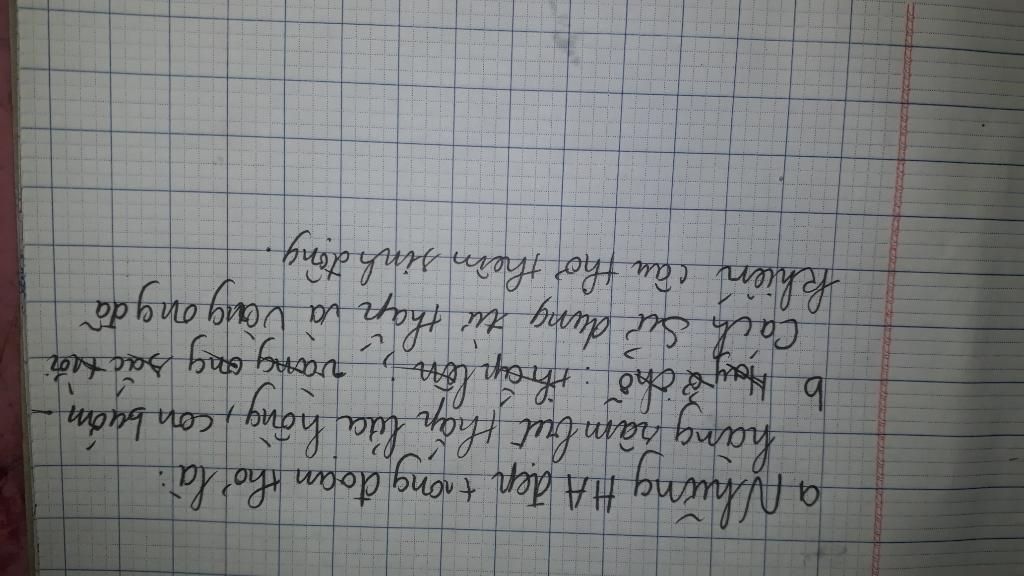 a Những HA đẹp trong đoạn thơ là:
hàng râm bụt thắp lửa hồng, con bướm -
b Hay ở chỗ: thắp lên; vàng ong sắc trời
Cách sử dụng từ thắp và vàng ong đã
khiến câu thơ thêm sinh động.